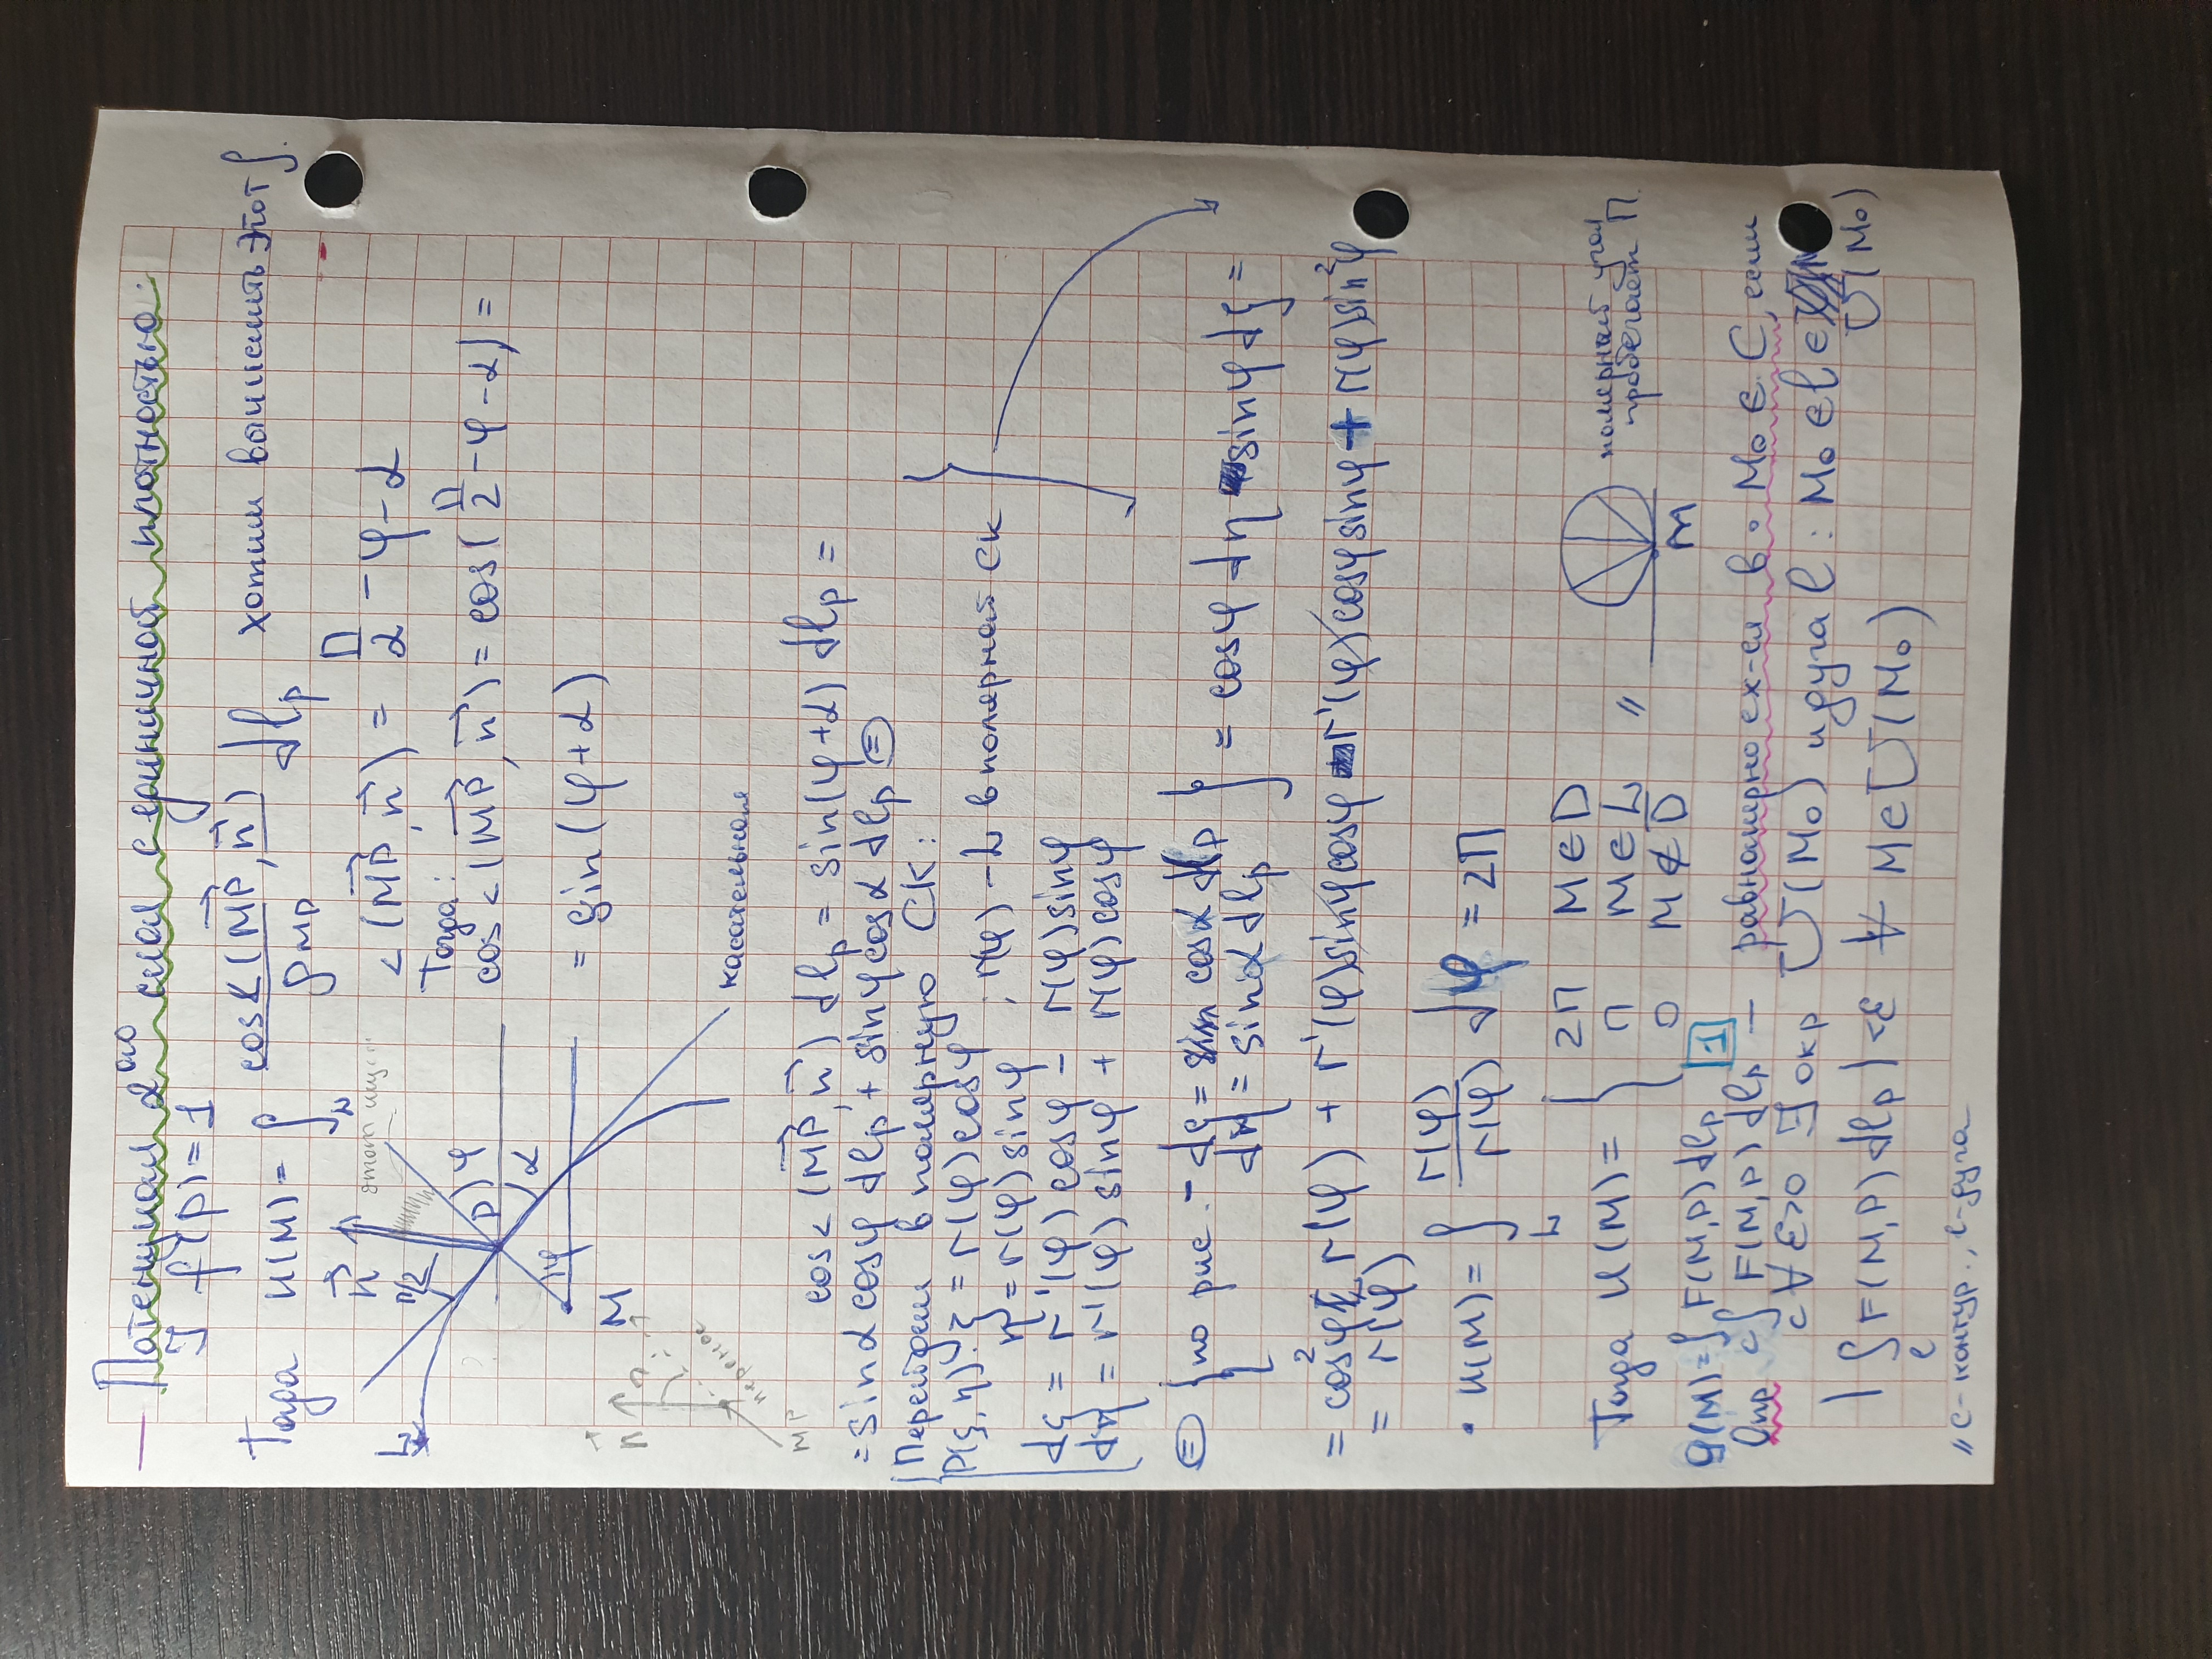 — Потенциал 2го слоя с единичной плотностью:
∃ f(p) = 1
Тогда u(M) = ∫_L cos∠(MP⃗, n⃗) / ρ_MP dl_p хотим вычислить этот ∫.
n⃗
π/2
этот
L
P
φ
α
φ
M
касательная
n
M
∠(MP⃗, n⃗) = π/2 - φ - α
Тогда:
cos∠(MP⃗, n⃗) = cos(π/2 - φ - α) =
= sin(φ+α)
cos∠(MP⃗, n⃗) dl_p = sin(φ+α) dl_p =
= sinα cosφ dl_p + sinφ cosα dl_p ⊜
Перейдем в полярную СК:
P(ξ, η): ξ = r(φ)cosφ ; r(φ) - L в полярной СК
η = r(φ)sinφ
dξ = r'(φ)cosφ - r(φ)sinφ
dη = r'(φ)sinφ + r(φ)cosφ
⊜ {по рис. - dξ = cosα dl_p
dη = sinα dl_p } = cosφ dη - sinφ dξ =
= cos²φ r(φ) + r'(φ)sinφcosφ - r'(φ)cosφsinφ + r(φ)sin²φ
= r(φ)
• u(M) = ∫_L r(φ)/r(φ) dφ = 2π
Тогда u(M) = { 2π M∈D
π M∈L
0 M∉D̄
" M
полярный угол
пробегает π.
g(M) = ∫_C F(M,P)dl_p [1]
Опр ∫_C F(M,P)dl_p — равномерно сх-ся в • M₀ ∈ C, если
∀ε>0 ∃ окр U(M₀) и дуга l: M₀ ∈ l ∈ U(M₀)
|∫_l F(M,P)dl_p| < ε ∀ M∈U(M₀)
"С - контур, l - дуга